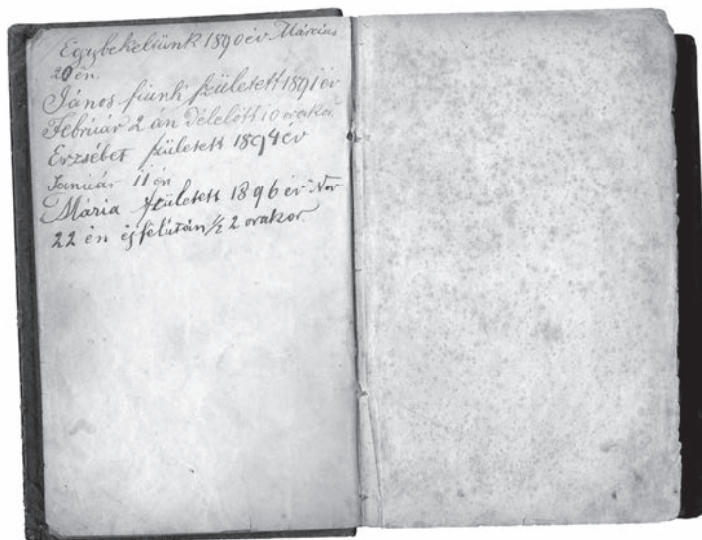 Egybekeltünk 1890 év Március
20 én.
János fiunk született 1891 év
Február 2 án délelőtt 10 orakor.
Erzsébet született 1894 év
Január 11 én
Mária született 1896 év Nov
22 én éjfélután ½ 2 orakor